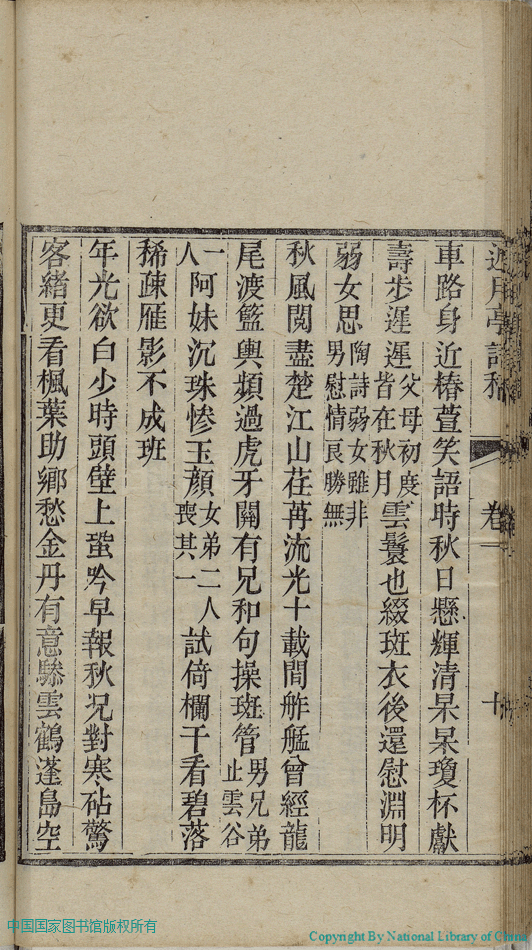 近月亭詩稿 卷一 十
車路身近椿萱笑語時秋日懸輝清杲杲瓊杯獻
壽步遲遲父母初度皆在秋月雲鬟也綴斑衣後還慰淵明
弱女思陶詩弱女雖非男慰情良勝無
秋風閱盡楚江山荏苒流光十載間舴艋曾經龍
尾渡籃輿頻過虎牙關有兄和句操斑管男兄弟止雲谷
一人阿妹沉珠慘玉顏女弟二人喪其一試倚欄干看碧落
稀疎雁影不成班
年光欲白少時頭壁上蛩吟早報秋况對寒砧驚
客緒更看楓葉助鄉愁金丹有意驂雲鶴蓬島空
中国国家图书馆版权所有
Copyright By National Library of China